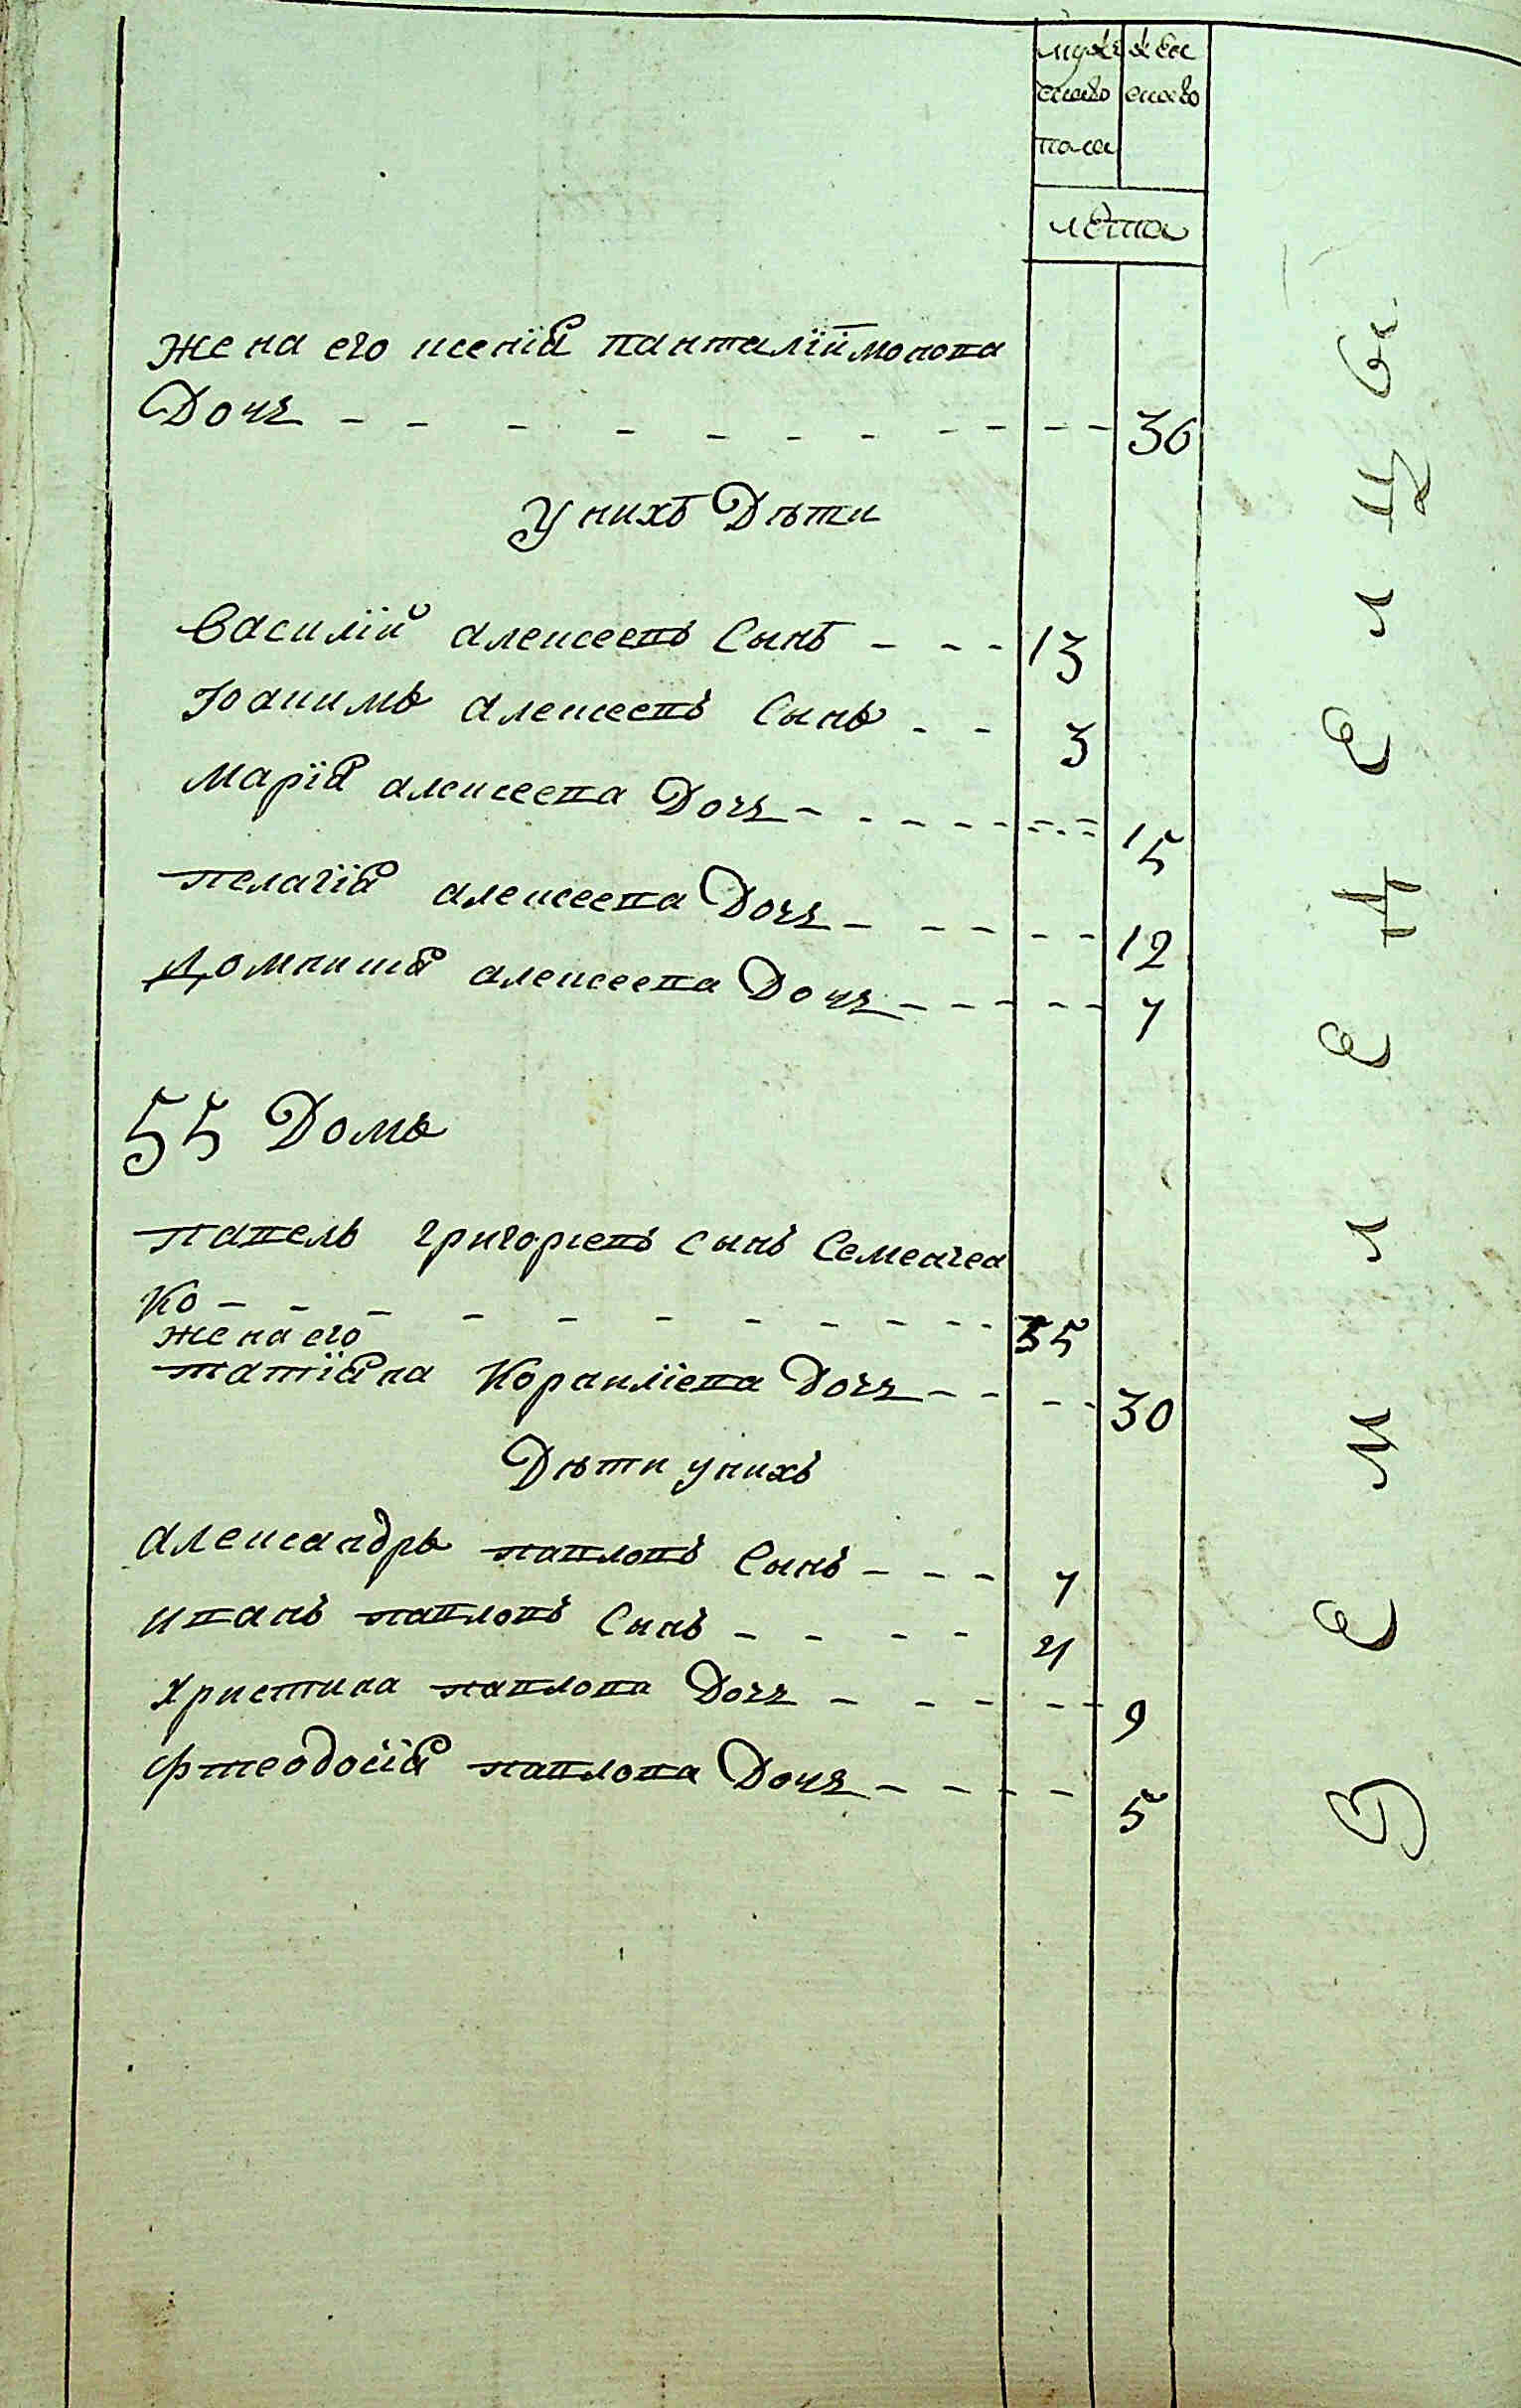 мужеска пола | женска
лета
жена его ксенїя панталїймонова
дочь - - - - - - - - - - 36
у нихъ дѣти
василїй алексеевъ сынъ - - - 13
Іоакимъ алексеевъ сынъ - - 3
марїя алексеева дочь - - - - - 15
пелагїя алексеева дочь - - - - - 12
домникия алексеева дочь - - - - - 7
55 Домъ
павелъ григориевъ сынъ Семенчен
ко - - - - - - - - - - 35
жена его
татїяна Корнилїева дочь - - - - 30
дѣти унихъ
александръ павловъ сынъ - - - 7
иванъ павловъ сынъ - - - - 4
христина павлова дочь - - - - - 9
фтеодосїя павлова дочь - - - - 5
З
Е
М
Л
Е
Д
Е
Л
Ц
Ы